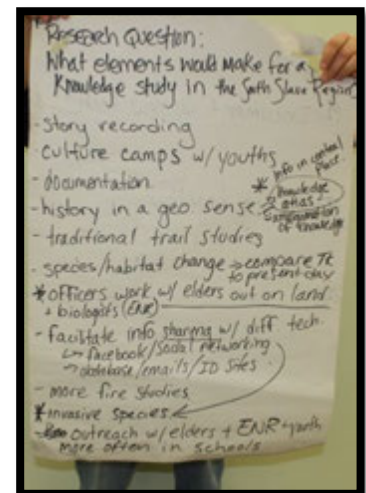 Research Question:
What elements would make for a
Knowledge study in the South Slave Region
- Story recording
- Culture camps w/ youths
- documentation
* Info in central place.
- history in a geo sense
Knowledge atlas -
of knowledge
- traditional trail studies
- species/habitat change → compare TK
to present day
* officers work w/ elders out on land.
+ biologists (ENR)
- facilitate info sharing w/ diff tech.
↳ facebook/social networking
↳ database/emails/ID sites.
- more fire studies
* invasive species
- outreach w/ elders + ENR + youth
more often in schools